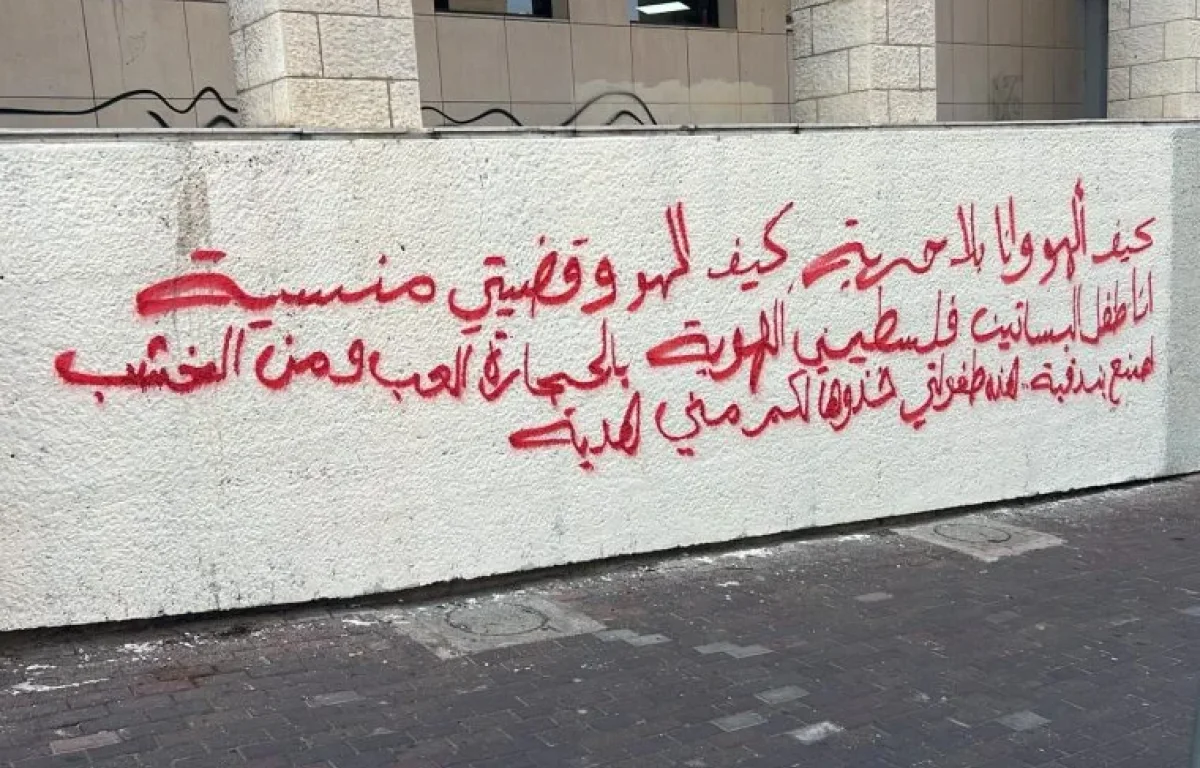 كيف ألهو وانا بلا حرية. كيف الهو وقضيتي منسية
انا طفل البساتين فلسطيني الهوية بالحجارة العب ومن الخشب
اصنع بندقية.. هذه طفولتي خذوها لكم مني هدية